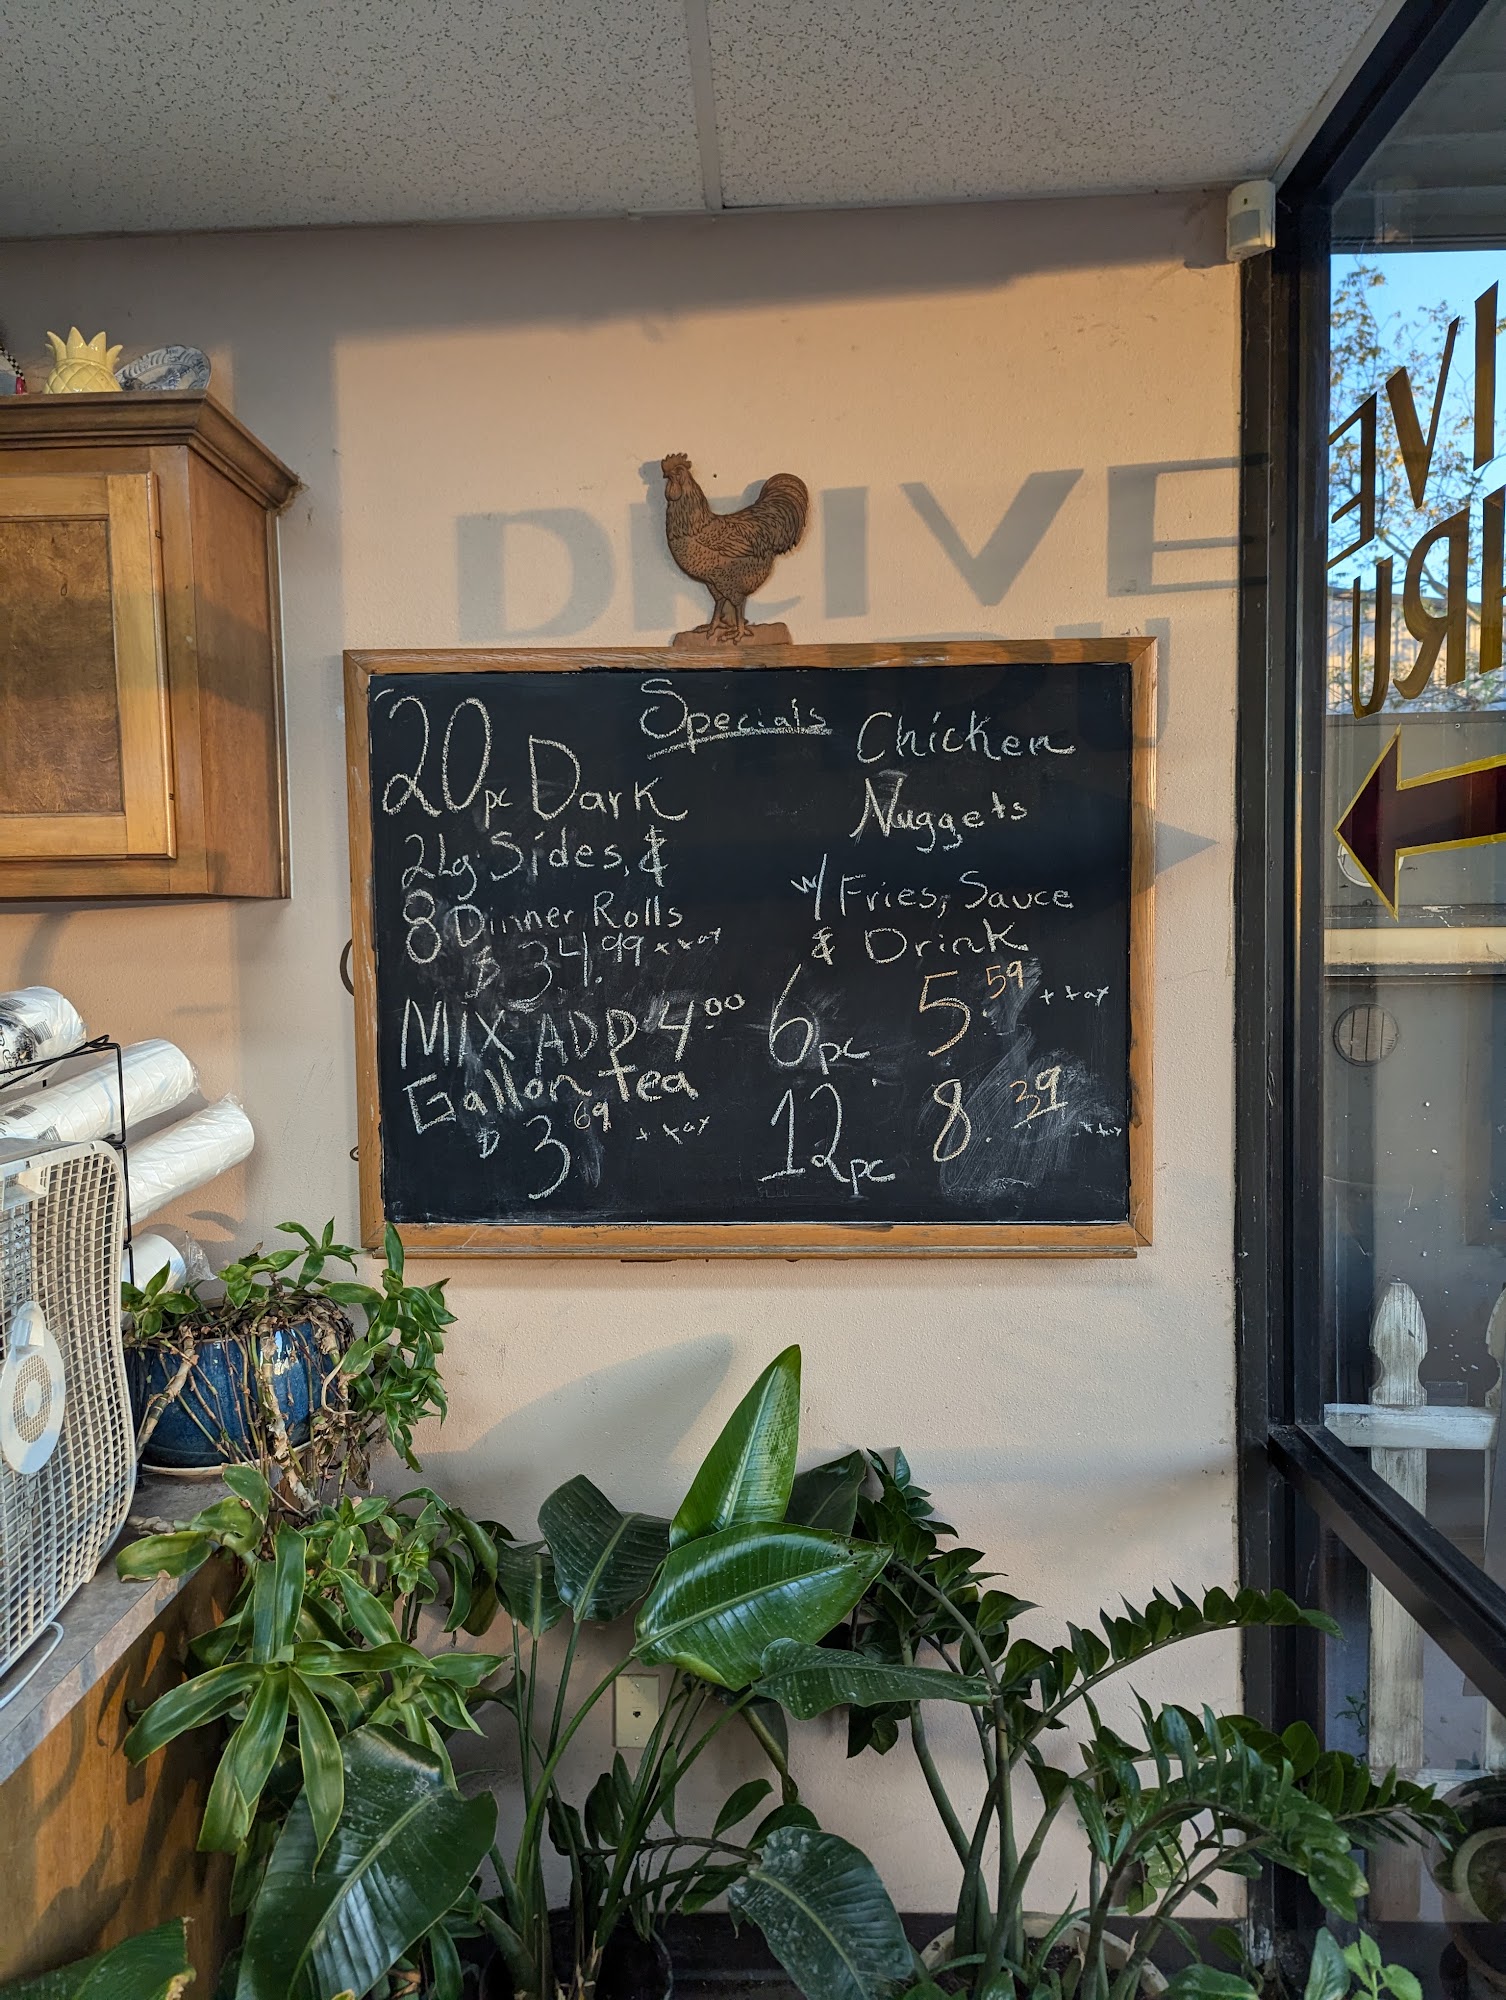 Specials
20pc Dark
2Lg Sides, &
8 Dinner Rolls
$34.99 + tax
MIX ADD 4.00
Gallon Tea
$3.69 + tax
Chicken
Nuggets
w/ Fries, Sauce
& Drink
6pc. 5.59 + tax
12pc 8.39 + tax
DRIVE